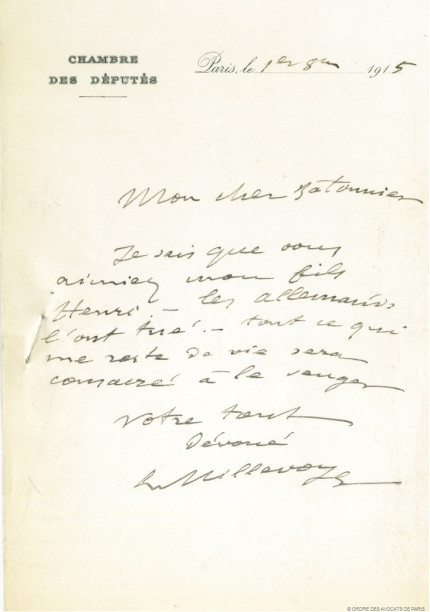 CHAMBRE
DES DÉPUTÉS
Paris, le 1er 8bre 1915
Mon cher Bâtonnier
Je sais que vous
aimiez mon fils
Henri - les allemands
l'ont tué. - tout ce qui
me reste de vie sera
consacré à le venger
Votre tout
Dévoué
L Millevoye
© ORDRE DES AVOCATS DE PARIS